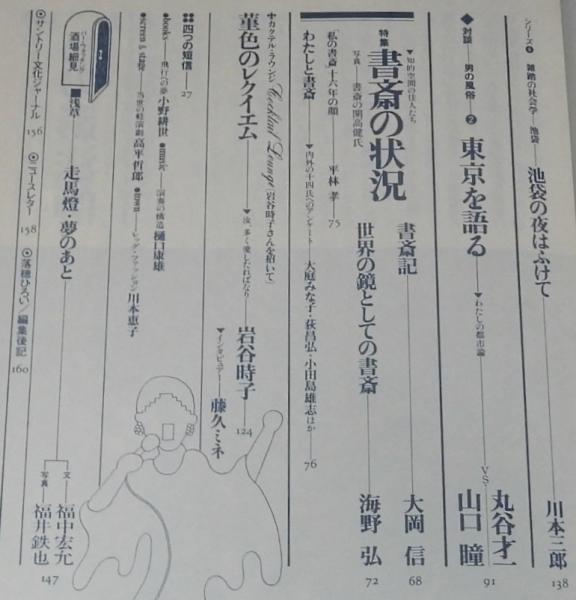 シリーズ❶ 雑踏の社会学――池袋――池袋の夜はふけて――川本三郎 138
◆対談――男の風俗――❷東京を語る――▼わたしの都市論――丸谷才一 VS. 山口瞳 91
特集 書斎の状況
▼知的空間の住人たち
写真――書斎の開高健氏
書斎記――大岡信 68
世界の鏡としての書斎――海野弘 72
「私の書斎」十六年の顔――平林孝――75
わたしと書斎――▼内外の十四氏へのアンケート――大庭みな子・荻昌弘・小田島雄志ほか 76
カクテル・ラウンジ Cocktail Lounge「岩谷時子さんを招いて」
菫色のレクイエム――▼汝、多く愛したればなり――岩谷時子 124
▼インタビュアー――藤久ミネ
四つの短信――27
●books――飛行への夢 小野耕世
●music――演奏の構造 樋口康雄
●screen & stage――当世の軽演劇 高平哲郎
●town――レッグ・ファッション 川本恵子
バー・ウォッチング
酒場細見
7
■浅草――走馬燈・夢のあと――文――福中宏允
写真――福井鉄也 147
◉サントリー文化ジャーナル――156
◉ニュースレター――158
◉落穂ひろい/編集後記――160